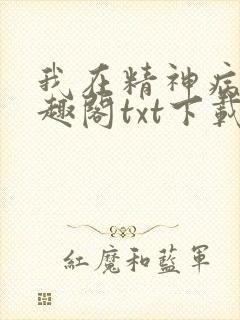 我在精神病
趣阁txt下载
紅魔和藍軍